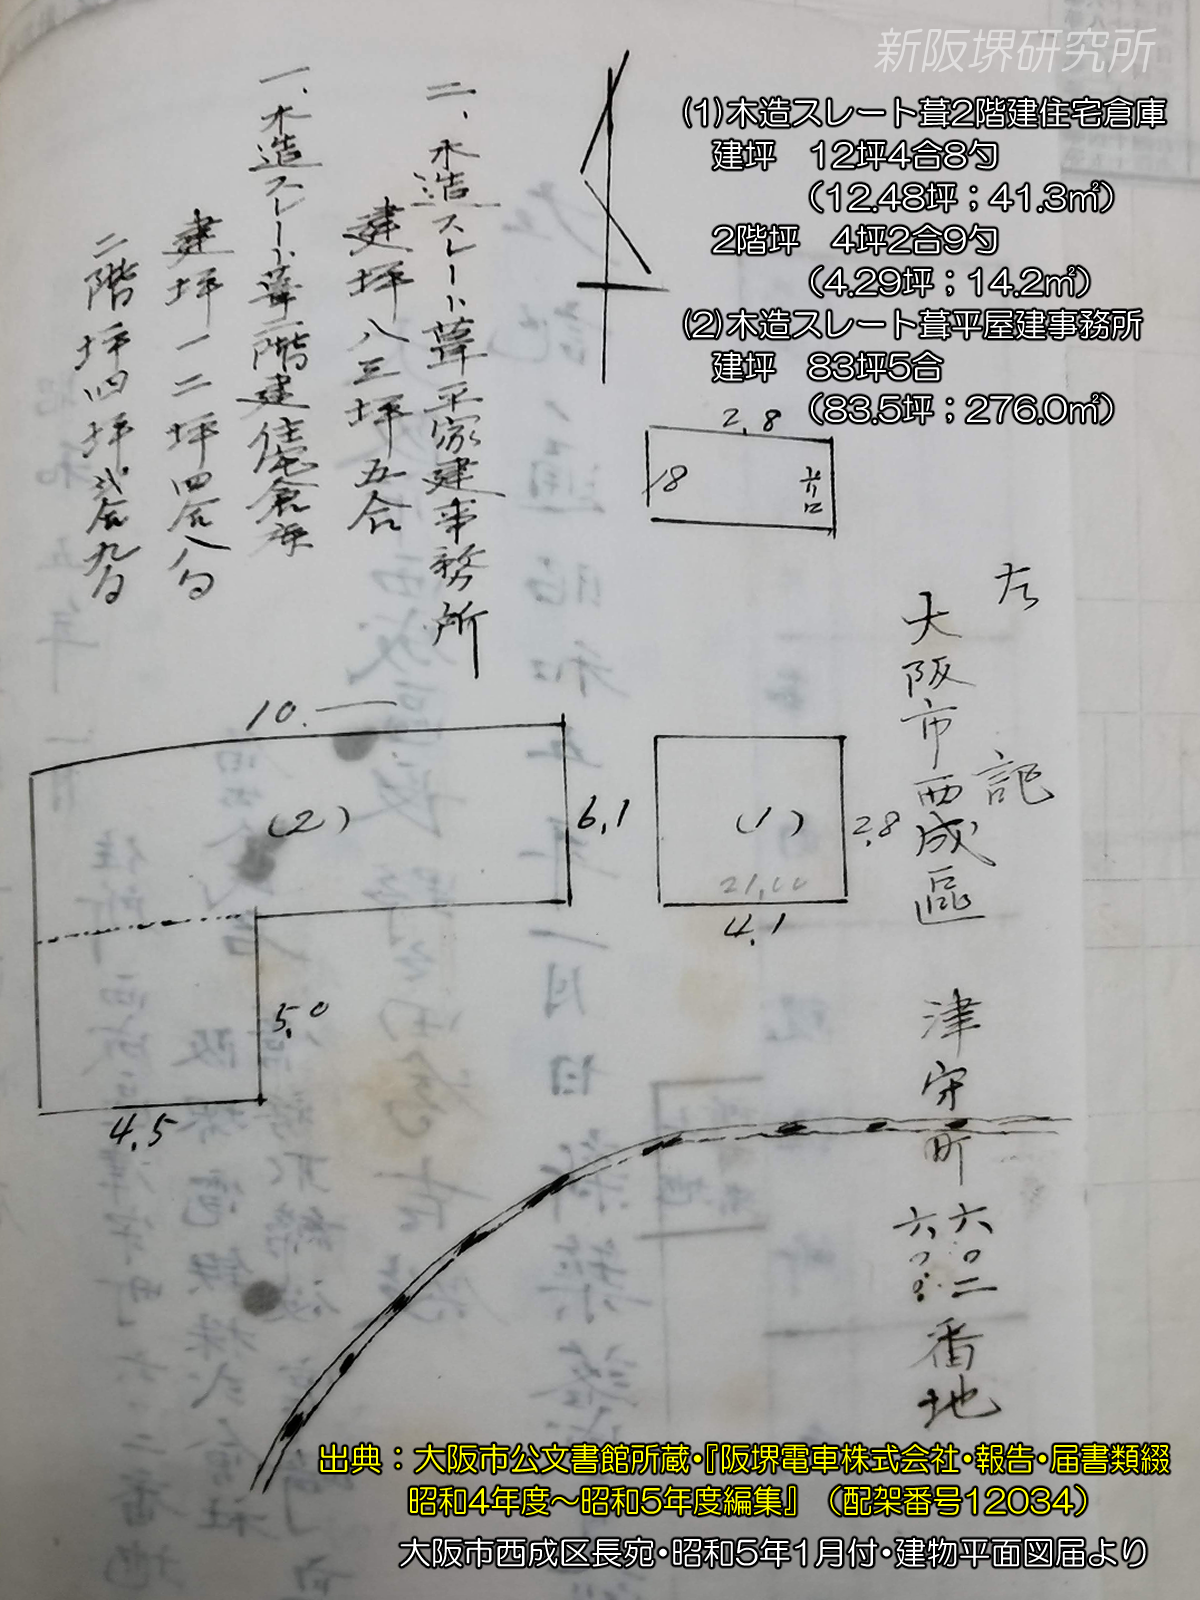 新阪堺研究所
(1)木造スレート葺2階建住宅倉庫
建坪 12坪4合8勺
(12.48坪；41.3㎡)
2階坪 4坪2合9勺
(4.29坪；14.2㎡)
(2)木造スレート葺平屋建事務所
建坪 83坪5合
(83.5坪；276.0㎡)
左記
大阪市西成區津守町六〇二番地
二、木造スレート葺平家建事務所
建坪八三坪五合
一、木造スレート葺二階建住宅倉庫
建坪一二坪四合八勺
二階坪四坪弐合九勺
2,8
18
10.
(2)
6,1
(1)
2,8
4,1
5,0
4,5
出典：大阪市公文書館所蔵・『阪堺電車株式会社・報告・届書類綴
昭和4年度～昭和5年度編集』（配架番号12034）
大阪市西成区長宛・昭和5年1月付・建物平面図届より